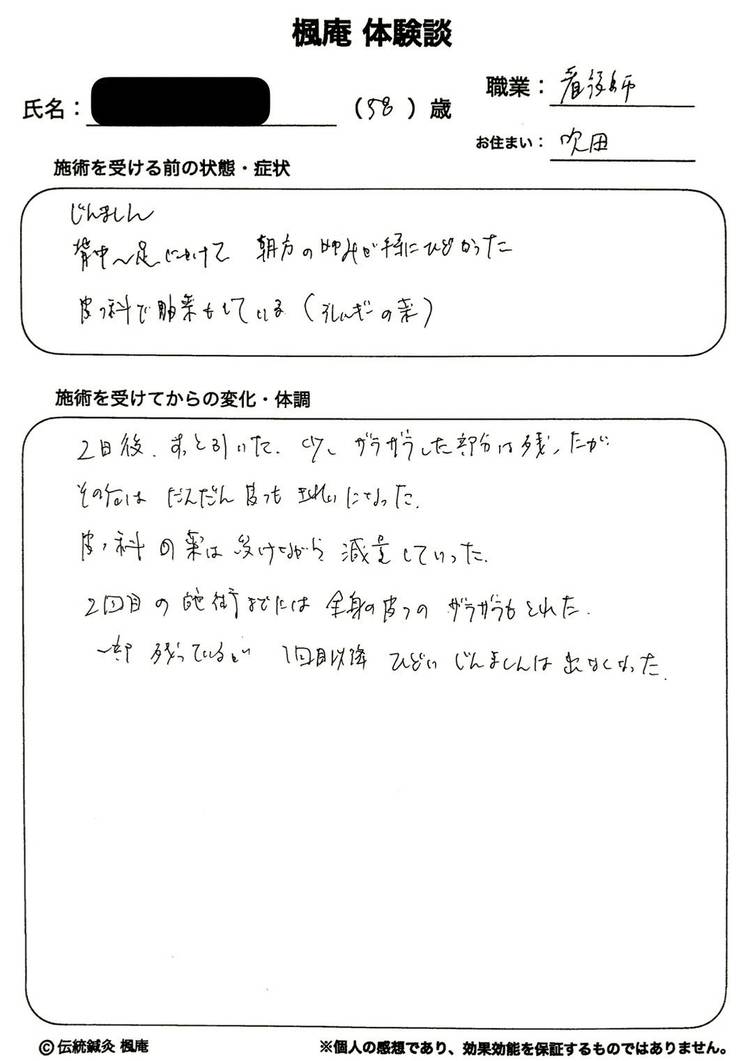 楓庵 体験談
氏名： （58）歳
職業： 看護師
お住まい： 吹田
施術を受ける前の状態・症状
じんましん
背中〜足にかけて 朝方の痒みが特にひどかった
皮フ科で服薬もしている（アレルギーの薬）
施術を受けてからの変化・体調
2日後、すっと引いた。少し ガサガサした部分は残ったが
その後は だんだん 皮フも きれいになった。
皮フ科の薬は 続けながら 減量していった。
2回目の施術までには 全身の皮フの ガサガサもとれた。
一部 残っているが 1回目以降 ひどい じんましんは 出なくなった。
©伝統鍼灸 楓庵
※個人の感想であり、効果効能を保証するものではありません。